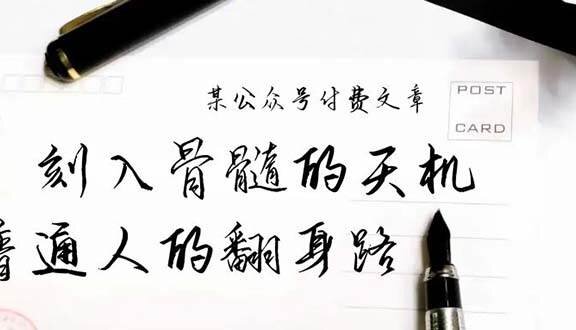 某公众号付费文章
POST
CARD
刻入骨髓的天机
普通人的翻身路